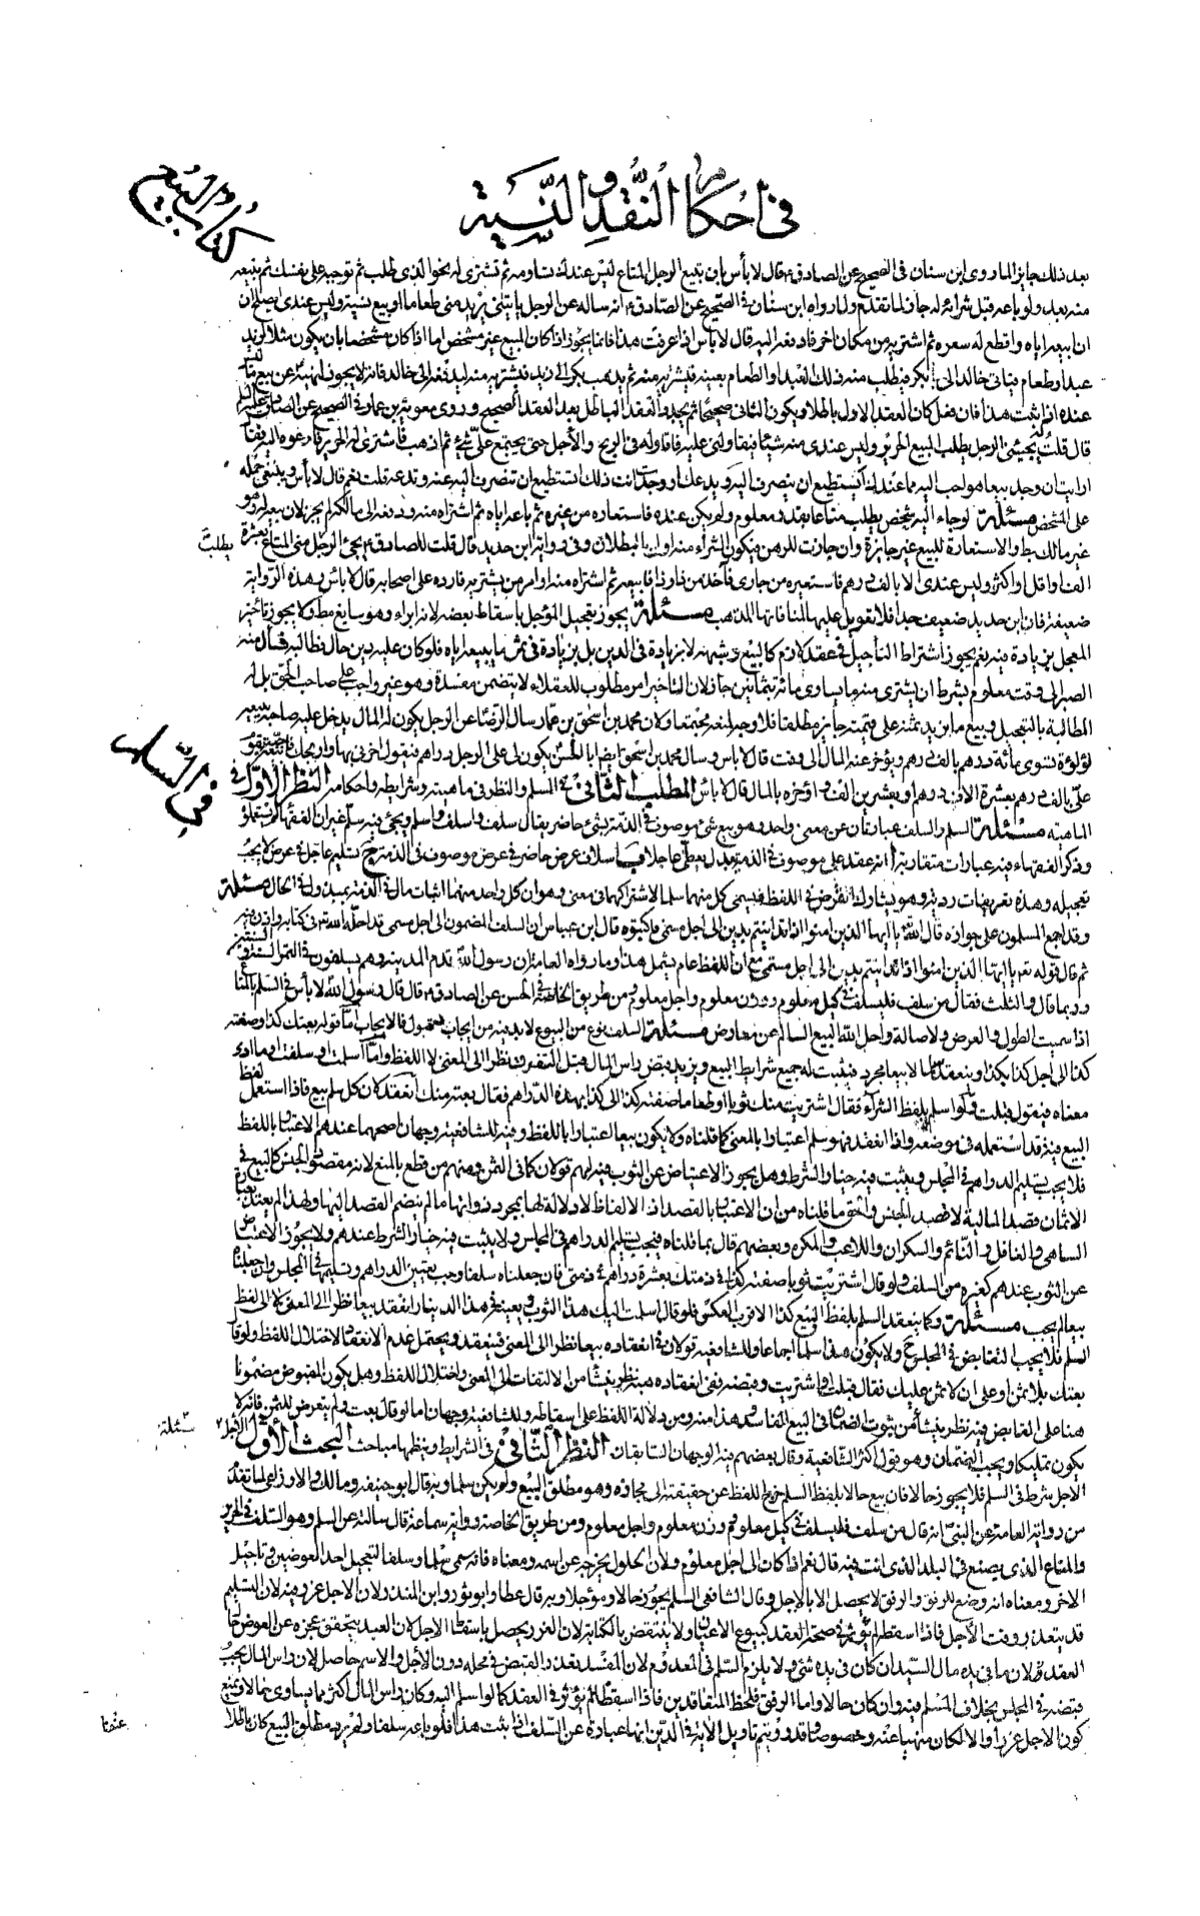 كتاب البيع
في احكام النقد والنسية
بعد ذلك جايز لما روى ابن سنان في الصحيح عن الصادق ع قال لا بأس بان تبيع الرجل المتاع ليس عندك تساومه ثم تشترى له نحو الذى طلب ثم توجبه على نفسك ثم تبيعه
منه بعد ولو باعه قبل شرائه له جاز لما تقدم ولما رواه ابن سنان في الصحيح عن الصادق ع انه ساله عن الرجل يأتينى يريد منى طعاما او بيع نسية وليس عندى ايصلح ان
ان ابيعه اياه واقطع له سعره ثم اشتريه من مكان اخر فادفعه اليه قال لا بأس اذا عرفت هذا فانما يجوز اذا كان المبيع غير مشخص اما اذا كان مشخصا بان يكون مثلا لزيد
عبد او طعام فيأتى خالد الى بكر فيطلب منه ذلك العبد او الطعام بعينه فيشتريه منه ثم يذهب بكر الى زيد فيشتريه منه ليدفعه الى خالد فانه لا يجوز لنهيه ع عن بيع ما ليس
عنده اذا ثبت هذا فان فعل كان العقد الاول باطلا ويكون الثانى صحيحا ثم يجدد العقد الباطل بعد العقد الصحيح وروى معوية بن عمار في الصحيح عن الصادق عليه السلم
قال قلت يجيئنى الرجل يطلب البيع الحرير وليس عندى منه شئ فيقاولنى عليه فاقاوله في الربح والأجل حتى يجتمع على شئ ثم اذهب فأشترى له الحرير فادعوه اليه فقال
ارايت ان وجد بيعا هو احب اليه مما عندك أيستطيع ان ينصرف اليه ويدعك او وجدت انت ذلك اتستطيع ان تنصرف اليه عنه وتدعه قلت نعم قال لا بأس وينبغى حمله
على المشخص مسئلة لو جاء اليه شخص يطلب متاعا بقدر معلوم ولم يكن عنده فاستعاره من غيره ثم باعه اياه ثم اشتراه منه ودفعه الى مالكه لم يجز لان بيعه له وهو
غير مالك بط والاستعارة للبيع غير جايزة وان جازت للرهن فيكون الشراء منه اولى بالبطلان وفى رواية ابن حديد قال قلت للصادق ع يجئ الرجل منى المتاع بعشرة
يطلب
الف او اقل او اكثر وليس عندى الا بالف درهم فاستعيره من جارى فآخذ من ذا وذا فابيعه ثم اشتراه منه او امر من يشتريه فارده على اصحابه قال لا بأس وهذه الرواية
ضعيفة فان ابن حديد ضعيف جدا فلا تعويل عليها لمنافاتها المذهب مسئلة يجوز تعجيل المؤجل باسقاط بعضه لانه ابراء وهو سايغ مط ولا يجوز تأخير
المعجل بزيادة فيه نعم يجوز اشتراط التأجيل في عقد لازم كالبيع وشبهه لا بزيادة في الدين بل بزيادة في ثمن ما يبيعه اياه فلو كان عليه دين حال فطالبه فسأل منه
الصبر الى وقت معلوم بشرط ان يشترى منه ما يساوى مائة بثمانين جاز لان التأخير امر مطلوب للعقلاء لا يتضمن مفسدة وهو غير واجب على صاحب الحق بل له
المطالبة بالتعجيل وبيع ما يزيد ثمنه على قيمته جايز مطلقا فلا وجه لمنعه مجتمعا ولان محمد بن اسحق بن عمار سال الرضا ع الرجل يكون له المال يدخل عليه صاحبه يبيعه
لؤلؤة تسوى مأئة درهم بالف درهم ويؤخر عنه المال الى وقت قال لا باس وسال محمد بن اسحق ايضا ابا الحسن يكون لى على الرجل دراهم فيقول اخرنى بها واربحك فابيعه
على بالف درهم بعشرة الاف درهم او بعشرين الف واؤخره بالمال قال لا بأس المطلب الثانى في السلم والنظر في ماهيته وشرايطه واحكامه النظر الاول في
في السلم
الماهية مسئلة السلم والسلف عبارتان عن معنى واحد وهو بيع شئ موصوف في الذمة لشئ حاضر يقال سلف واسلف واسلم ويجئ فيه سلم غير ان الفقهاء لم يستعملوه
وذكر الفقهاء فيه عبارات متقاربة انه عقد على موصوف في الذمة ببدل يعطى عاجلا ب اسلاف عوض حاضر في عوض موصوف في الذمة ج تسليم عاجل في عوض لا يجب
تعجيله وهذه تعريفات ردية وهو يشارك القرض في اللفظ فيسمى كل منهما سلفا لاشتراكهما في معنى وهو ان كل واحد منهما اثبات مال في الذمة بمبذول في الحال مسئلة
وقد اجمع المسلمون على جوازه قال الله تع يا ايها الذين امنوا اذا تداينتم بدين الى اجل مسمى فاكتبوه قال ابن عباس ان السلف المضمون الى اجل مسمى قد احله الله تع في كتابه واذن فيه
ثم قال قوله تع يا ايها الذين امنوا اذا تداينتم بدين الى اجل مسمى مع ان اللفظ عام يشمل هذا وما رواه العامة ان رسول الله ص قدم المدينة وهم يسلفون في التمر السنة والسنتين
وربما قال والثلث فقال من سلف فليسلف في كيل معلوم ووزن معلوم واجل معلوم ومن طريق الخاصة في الحسن عن الصادق ع قال قال رسول الله ص لا بأس في السلم بالمتاع
اذا سميت الطول والعرض ولاصالة واحل الله البيع السالم عن معارض مسئلة السلف نوع من البيوع لابد فيه من ايجاب وقبول فالايجاب اما قوله بعتك كذا وصفته
كذا الى اجل كذا بكذا وينعقد سلما لا بيعا مجرد فيثبت له جميع شرايط البيع ويزيد قبض راس المال قبل التفرق نظرا الى المعنى لا اللفظ واما اسلمت او سلفت او ما ادى
معناه فيقول قبلت ولو اسلم بلفظ الشراء فقال اشتريت منك ثوبا او طعاما صفته كذا الى كذا بهذه الدراهم فقال بعته منك انعقد لان كل سلم بيع فاذا استعمل لفظ
البيع فيه فقد استعمله في موضعه واذا انعقد فهو سلم اعتبارا بالمعنى كما قلناه ولا يكون بيعا اعتبارا باللفظ وفيه للشافعية وجهان اصحهما عندهم الاعتبار باللفظ
فلا يجب تسليم الدراهم في المجلس ويثبت فيه خيار الشرط وهل يجوز الاعتياض عن الثوب فيه لهم قولان كما في الثمن ومنهم من قطع بالمنع لانه مقصود الجنس كالمبيع في
الاثمان قصد المالية لا قصد الجنس والحق ما قلناه من ان الاعتبار بالقصد اذ الالفاظ لا دلالة لها بمجرد ذواتها ما لم ينضم القصد اليها ولهذا لم يعتد بعبارة
الساهى والغافل والنائم والسكران واللاعب والمكره وبعضهم قال بما قلناه فيجب تسليم الدراهم في المجلس ولا يثبت فيه خيار الشرط عندهم ولا يجوز الاعتياض
عن الثوب عندهم كغيره من السلف ولو قال اشتريت ثوبا صفته كذا في ذمتك بعشرة دراهم في ذمتى فان جعلناه سلفا وجب تعيين الدراهم وتسليمها في المجلس وان جعلناه
بيعا لم يجب مسئلة وكما ينعقد السلم بلفظ البيع كذا الاقرب العكس فلو قال اسلمت اليك هذا الثوب بعينه في هذا الدينار انعقد بيعا نظرا الى المعنى لا الى لفظ
السلم فلا يجب التقابض في المجلس ح ولا يكون هذا سلما اجماعا وللشافعية قولان في انعقاده بيعا نظرا الى المعنى فينعقد ويحتمل عدم الانعقاد لاختلال اللفظ ولو قال
بعتك بلا ثمن او على ان لا ثمن عليك فقال قبلت او اشتريت وقبضه ففى انعقاده هبة نظر ينشأ من الالتفات الى المعنى واختلال اللفظ وهل يكون المقبوض مضمونا
هنا على القابض فيه نظر ينشأ من ثبوت الضمان في البيع الفاسد وهذا منه ومن دلالة اللفظ على اسقاطه وللشافعية وجهان اما لو قال بعت ولم يتعرض للثمن فانه لا
مسئلة
يكون تمليكا ويجب الضمان وهو قول اكثر الشافعية وقال بعضهم فيه الوجهان السابقان النظر الثانى في الشرايط وينظمها مباحث البحث الاول الاجل
الاجل شرط في السلم فلا يجوز حالا فان بيع حالا بلفظ السلم خرج اللفظ عن حقيقته الى مجازه وهو مطلق البيع ولم يكن سلما وبه قال ابو حنيفة ومالك والاوزاعى لما تقدم
من رواية العامة عن النبى ص انه قال من سلف فليسلف في كيل معلوم ووزن معلوم واجل معلوم ومن طريق الخاصة رواية سماعة قال سالته عن السلم وهو السلف في الحرير
والمتاع الذى يصنع في البلد الذى انت فيه قال نعم اذا كان الى اجل معلوم ولان الحلول يخرجه عن اسمه ومعناه فانه سمى سلما وسلفا لتعجيل احد العوضين وتاجيل
الاخر ومعناه انه وضع للرفق والرفق لا يحصل الا بالاجل وقال الشافعى السلم يجوز حالا ومؤجلا وبه قال عطا وابو ثور وابن المنذر ولان الاجل غرر فيه لان التسليم
قد يتعذر وقت الأجل فاذا اسقطه لم يؤثر في صحة العقد كبيوع الاعيان ولا ينتقض بالكتابة لان الغرر يحصل باسقاط الاجل لان العبد يتحقق عجزه عن العوض حال
العقد ولان ما في يده مال السيد ان كان في يده شئ ولا يلزم السلم في المعدوم لان المفسد تعذر القبض في محله دون الأجل والاسم حاصل لان راس المال يجب
قبضه في المجلس بخلاف المسلم فيه وان كان حالا واما الرفق فلحظ المتعاقدين فاذا اسقطاه لم يؤثر في العقد كما لو اسلم اليه وكان راس المال اكثر مما يساوى حالا ونمنع
كون الاجل غررا والا لكان منهيا عنه وخصوصا وقد ورد في تاويل الاية في الدين انها عبارة عن السلف اذا ثبت هذا فلو باعه سلفا ولم يرد به مطلق البيع كان باطلا